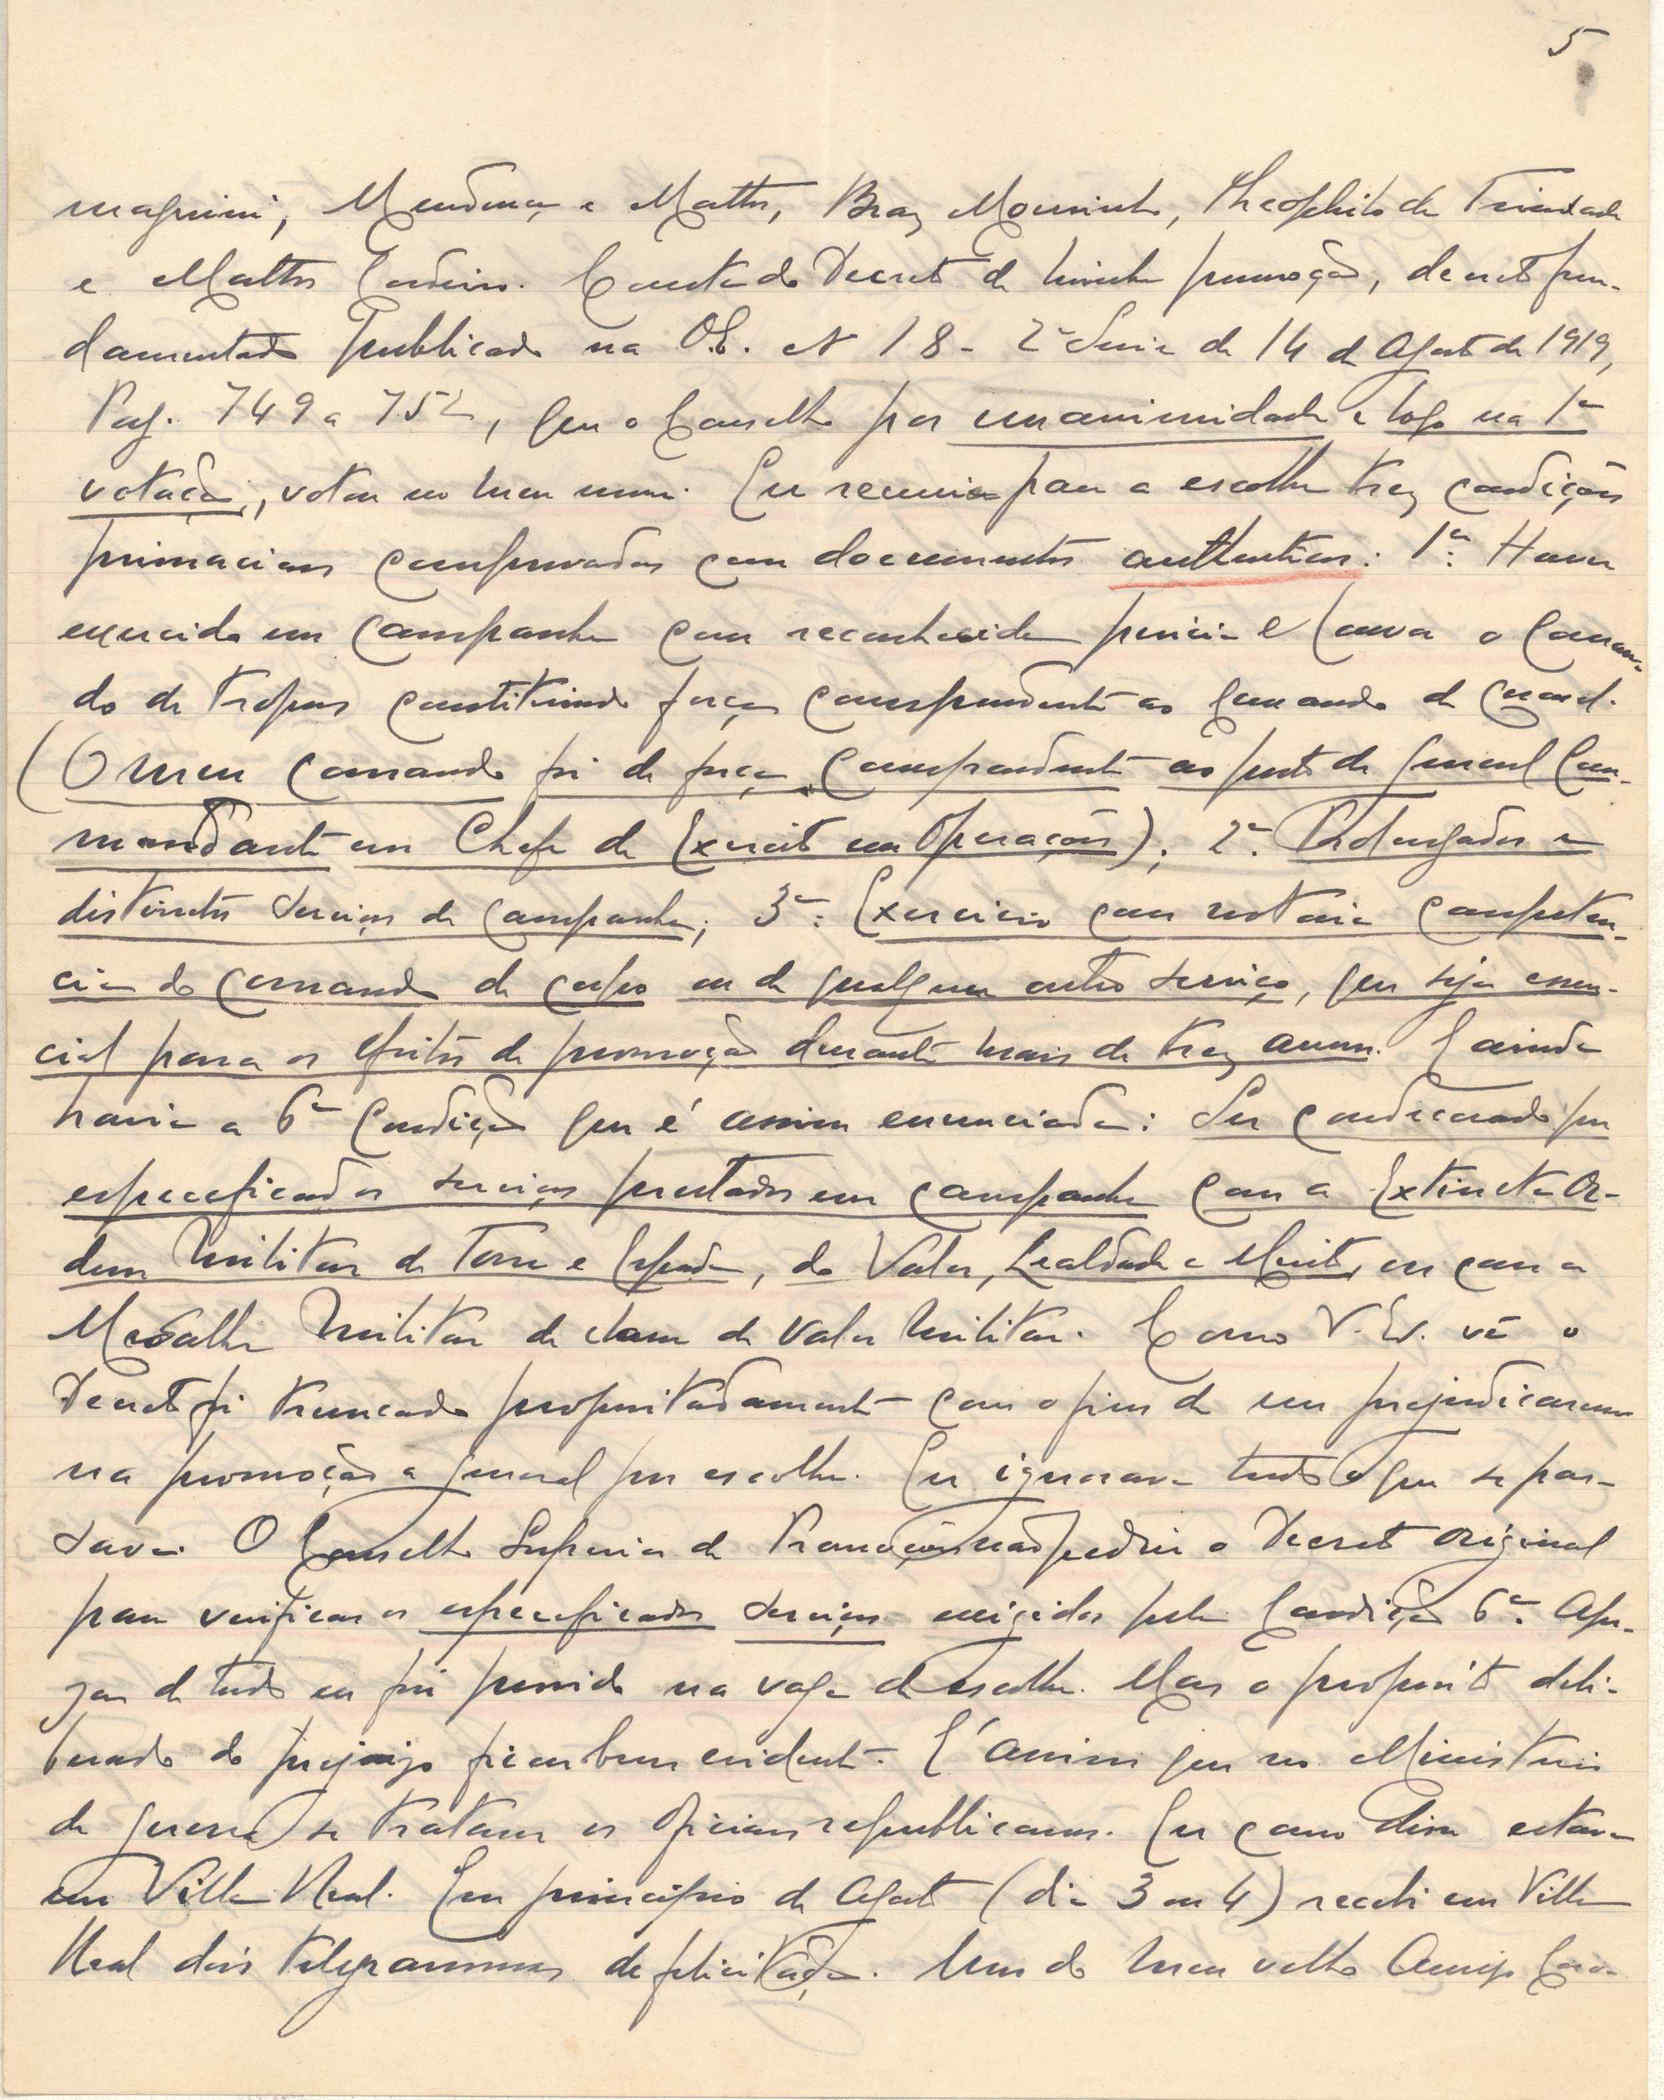 5
magnini, Mendonça e Mattos, Braz Mousinho, Theophilo da Trindade
e Mattos Cordeiro. Consta do Decreto da minha promoção, decreto fun-
damentado publicado na O.E. Nº 18 - 2ª Serie de 14 de Agosto de 1919,
Pag. 749 a 752, que o Conselho por unanimidade e logo na 1ª
votação, votou no meu nome. Eu reunia para a escolha trez condições
primaciaes comprovadas com documentos authenticos: 1ª: Haver
exercido em campanha com reconhecida pericia e louvor o coman-
do de tropas constituindo força correspondente ao comando de coronel.
(O meu comando foi de força correspondente ao posto de general Com-
mandante em Chefe de Exercito em Operações); 2ª: Prolongados e
distinctos serviços de campanha; 3ª: Exercicio com notoria competen-
cia do comando de corpo ou de qualquer outro serviço, que seja essen-
cial para os efeitos de promoção durante mais de trez annos. E ainda
havia a 6ª Condição que é assim enunciada: Ser condecorado por
especeficados serviços prestados em campanha com a Extincta Or-
dem Militar da Torre e Espada, do Valor, Lealdade e Merito, ou com a
Medalha Militar da classe de Valor Militar. Como V. Ex. vê o
Decreto foi truncado propositadamente com o fim de me prejudicarem
na promoção a general por escolha. Eu ignorava tudo o que se pas-
sava. O Conselho Superior de Promoções não pediu o Decreto original
para verificar os especeficados serviços exigidos pela Condição 6ª. Ape-
zar de tudo eu fui provido na vaga de escolha. Mas o proposito deli-
berado do prejuizo ficou bem evidente. É assim que no Ministerio
da guerra se tratam os Oficiaes republicanos. Eu como disse estava
em Villa Real. Em principio de Agosto (dia 3 ou 4) recebi em Villa
Real dois telegrammas de felicitação. Um do meu velho Amigo